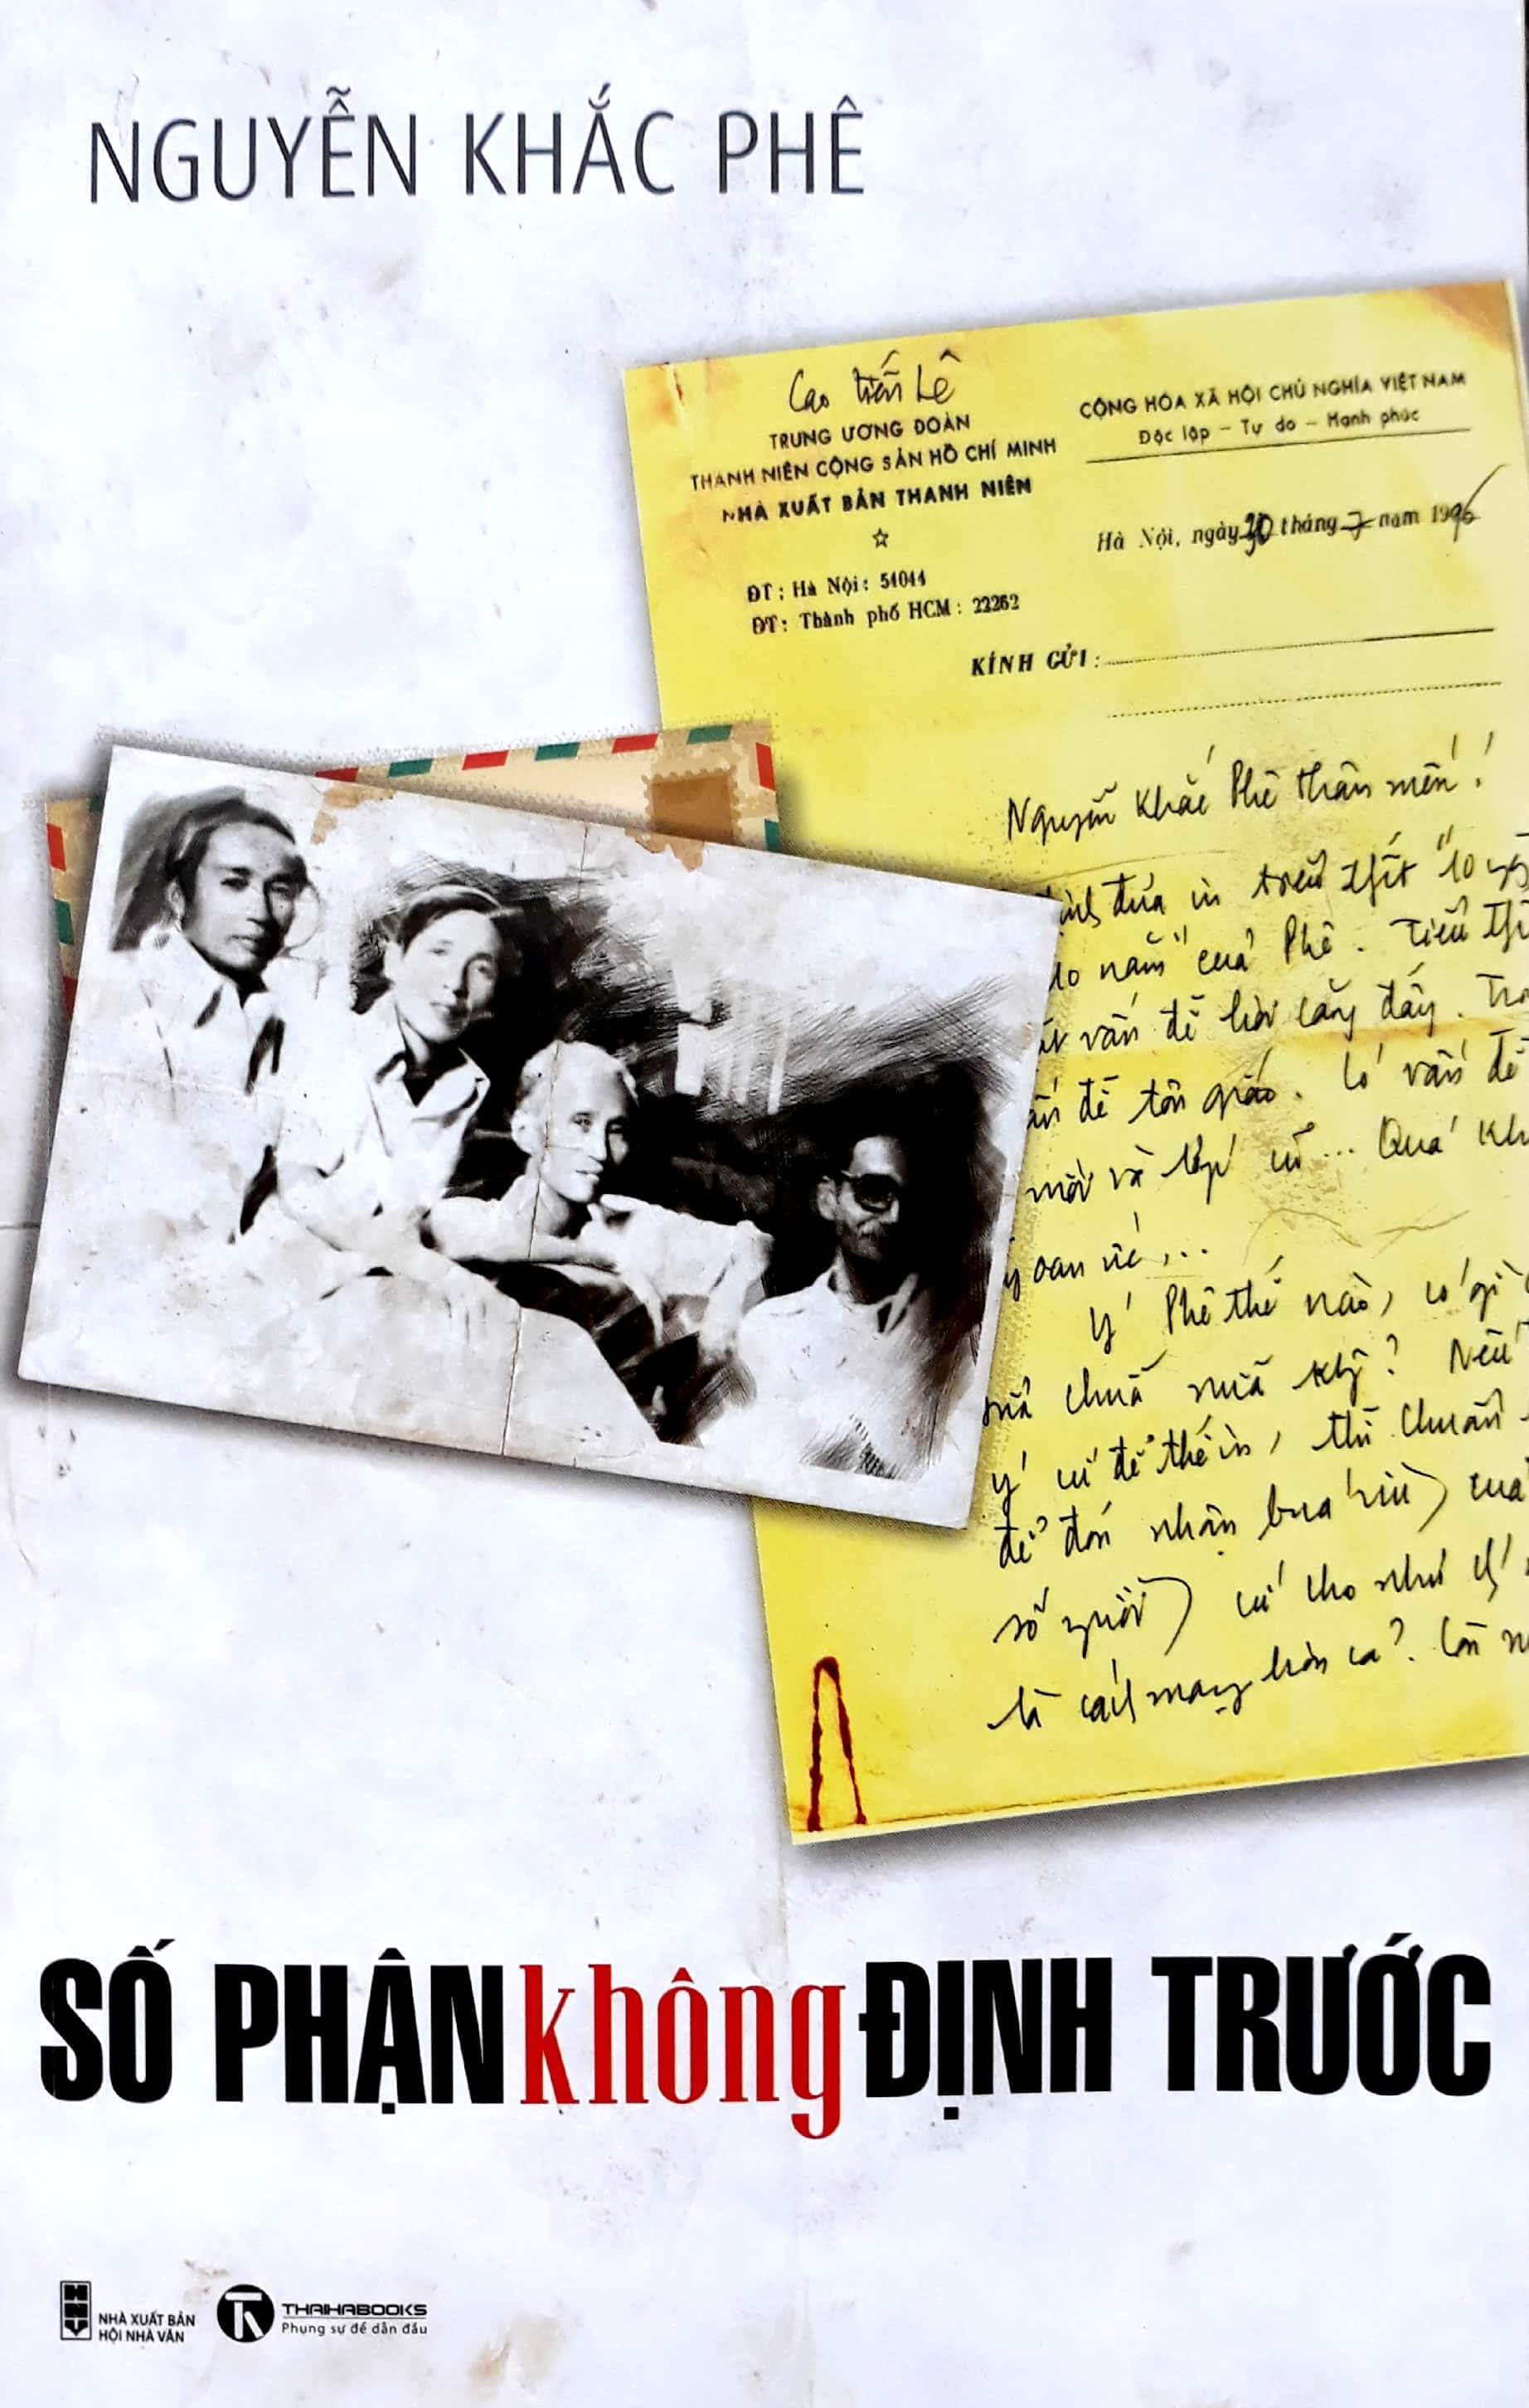 NGUYỄN KHẮC PHÊ
Cao Tiến Lê
TRUNG ƯƠNG ĐOÀN
THANH NIÊN CỘNG SẢN HỒ CHÍ MINH
NHÀ XUẤT BẢN THANH NIÊN
ĐT: Hà Nội: 51044
ĐT: Thành phố HCM: 22262
CỘNG HÒA XÃ HỘI CHỦ NGHĨA VIỆT NAM
Độc lập - Tự do - Hạnh phúc
Hà Nội, ngày tháng 7 năm 199
KÍNH GỬI:
Nguyễn Khắc Phê thân mến!
đưa in tiểu thuyết "10
năm" của Phê. Tiểu
vấn đề
đề tôn giáo. Có vấn đề
mới và lớp cũ... Quá
oan ức,...
Ý Phê thế nào, có gì
chữa nữa không? Nếu
ý cứ để thế in, thì chuẩn
để đón nhận búa rìu của
số người cứ cho như
là cách mạng hơn cả? Còn
SỐ PHẬN không ĐỊNH TRƯỚC
NHÀ XUẤT BẢN
HỘI NHÀ VĂN
THAIHABOOKS
Phụng sự để dẫn đầu